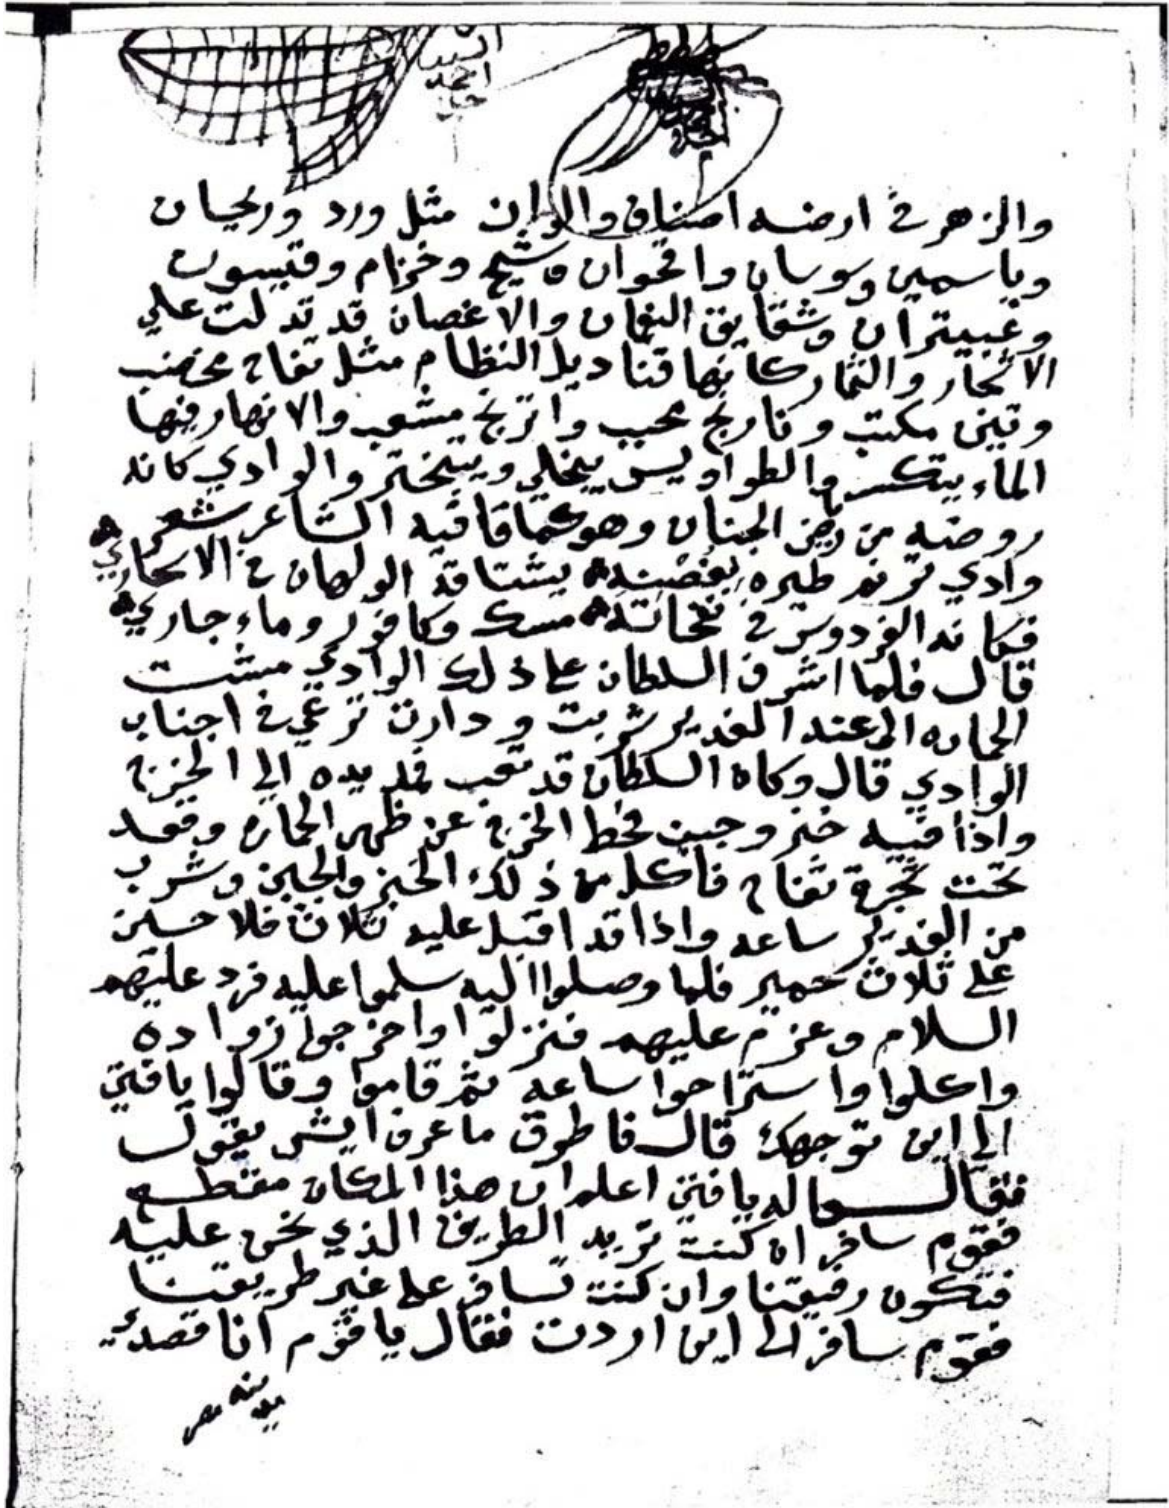 والزهر في ارضه اصناف والوان مثل ورد وريحان
وياسمين وسوسان واقحوان وشيح وخزام وقيسون
وعبيتران وشقايق النعمان والاغصان قد تدلت علي
الاشجار والثمار كانها قناديل النظام مثل تفاح مخضب
وتين مكتب ونارنج محبب واترنج مشعب والانهار فيها
الماء يتكسر والطواويس يتجلي ويتبختر والوادي كانه
روضه من رياض الجنان وهو كما قا فيه الشاعر شعر
وادي ترنم طيره بغصنه يشتاقه الولهان في الاسحاري
فكانه الفردوس في نفحاته مسك وكافور وماء جاري
قال فلما اشرف السلطان علي ذلك الوادي مشت
الحماره الي عند الغدير شربت ودارت ترعي في اجناب
الوادي قال وكان السلطان قد تعب فمد يده الي الخرج
واذا فيه خبز وجبن فحط الخرج عن ظهر الحماره وقعد
تحت شجرة تفاح فاكل من ذلك الخبز والجبن وشرب
من الغدير ساعه واذا قد اقبل عليه ثلاث فلاحين
علي ثلاث حمير فلما وصلوا اليه سلموا عليه فرد عليهم
السلام وعزم عليهم فنزلوا واخرجوا زواده
واكلوا واستراحوا ساعه ثم قاموا وقالوا يا فتي
الي اين توجهك قال فاطرق ما عرف ايش يقول
فقالوا له يا فتي اعلم ان هذا المكان مقطع
فقوم سافر ان كنت تريد الطريق الذي نحن عليه
فتكون رفيقنا وان كنت تسافر علي غير طريقتنا
فقوم سافر الي اين اردت فقال يا قوم انا قصدي
مدينه مصر